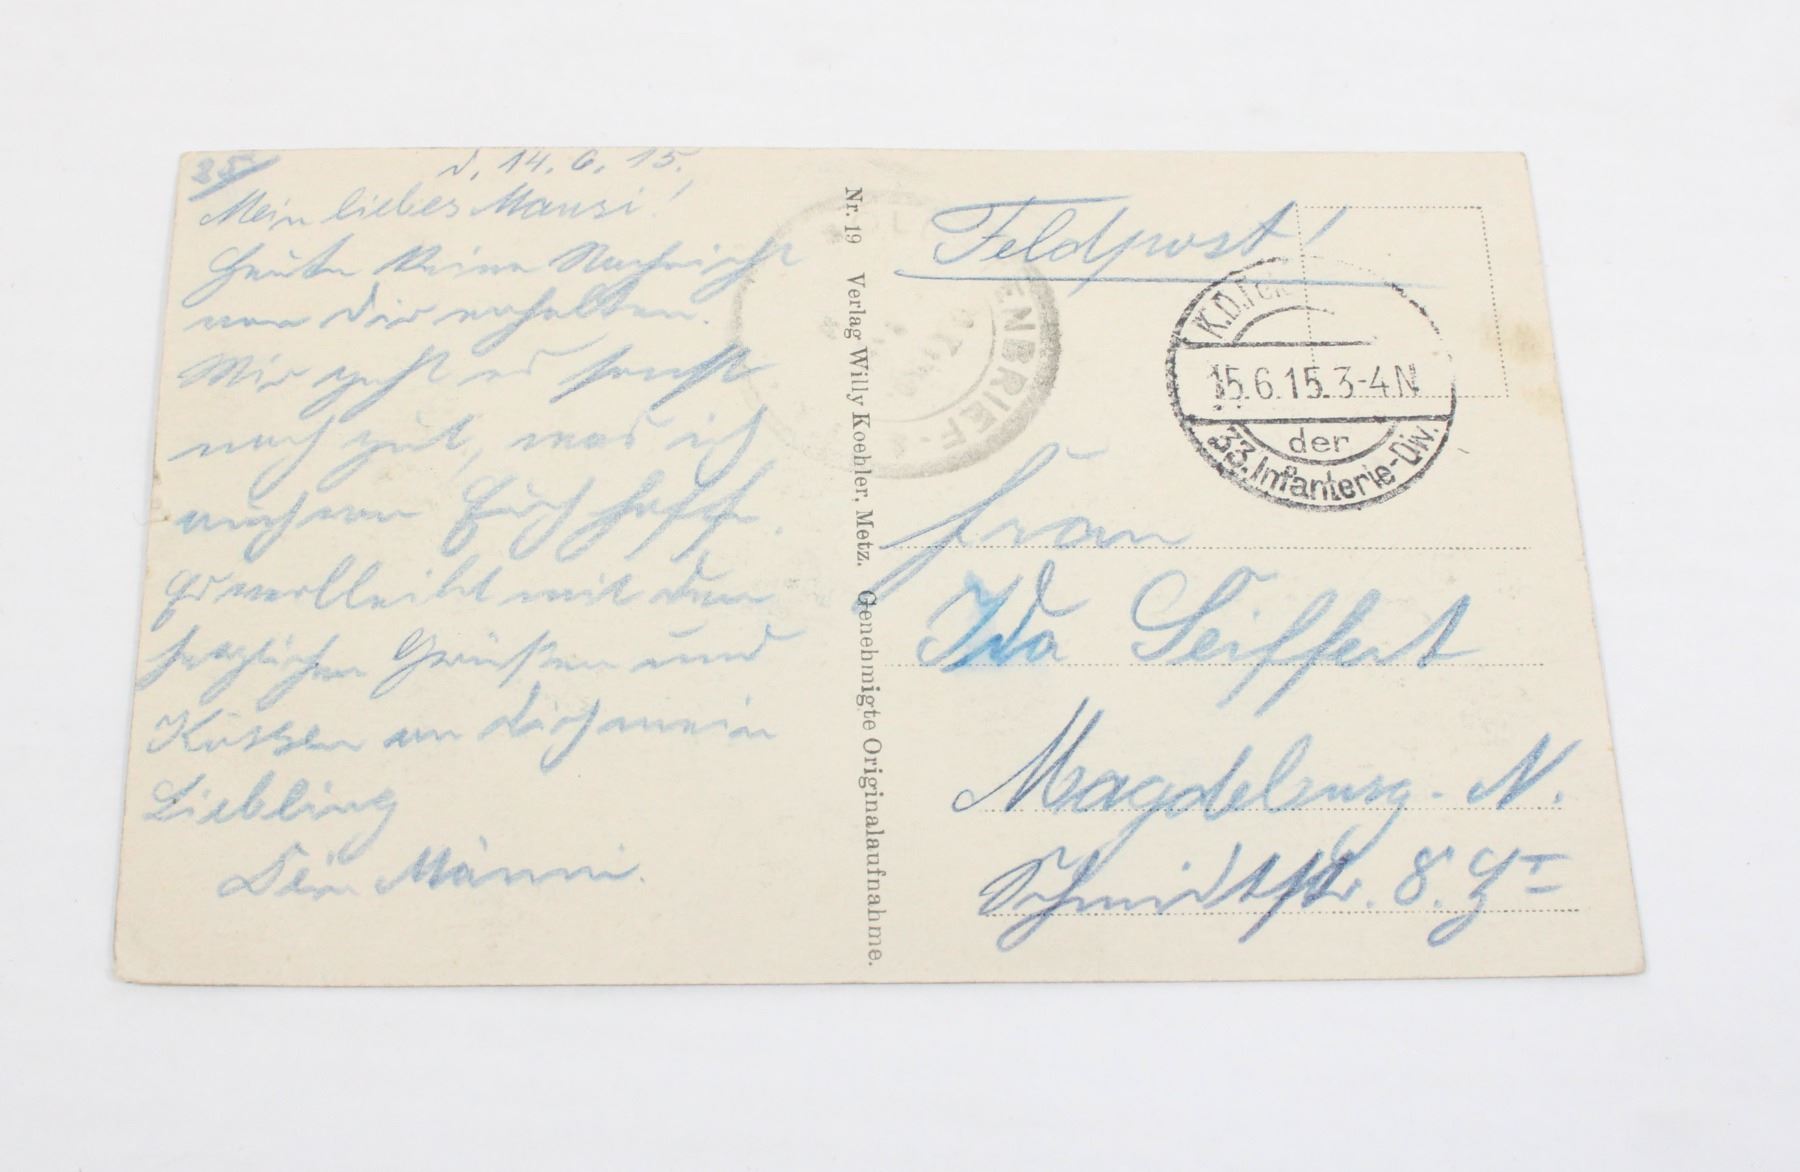 25
d. 14.6.15.
Mein liebes Mausi!
Heute keine Nachricht
von Dir erhalten.
Mir geht es sonst
noch gut, was ich
auch von Euch hoffe.
Es verbleibt mit den
herzlichen Grüßen und
Küssen an Dich mein
Liebling
Dein Männi.
Nr. 19 Verlag Willy Koehler, Metz. Genehmigte Originalaufnahme.
ENBRIEF
Feldpost!
K.D.Feld
15.6.15. 3-4N
der
33. Infanterie-Div.
Frau
Ida Seiffert
Magdeburg. N.
Schmidtstr. 8.